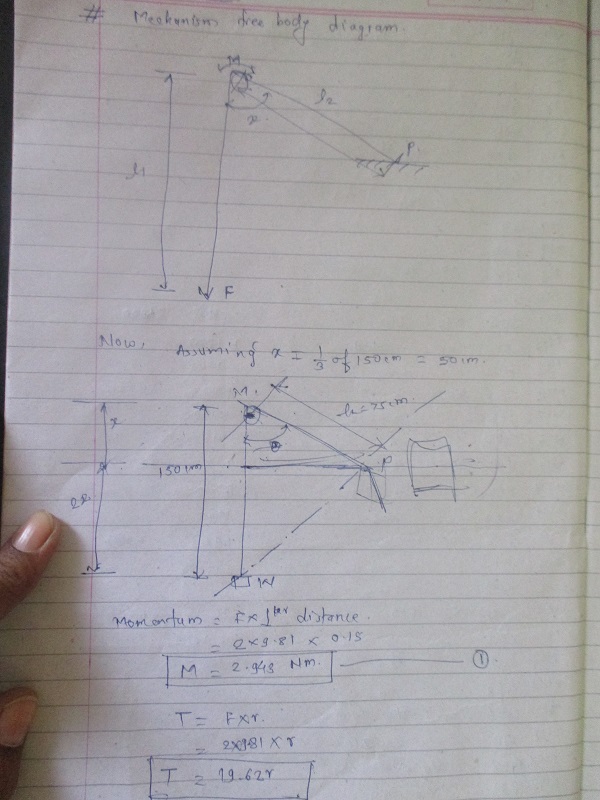 # Mechanism free body diagram.
M
l2
x
P.
l1
F
Now, Assuming x = 1/3 of 150cm = 50cm.
M.
x
θ
P
150cm
2x
W
Momentum = F x ⊥ber distance.
= 2x9.81 x 0.15
M = 2.943 Nm. ①
T = Fxr.
= 2x981 x r
T = 19.62r